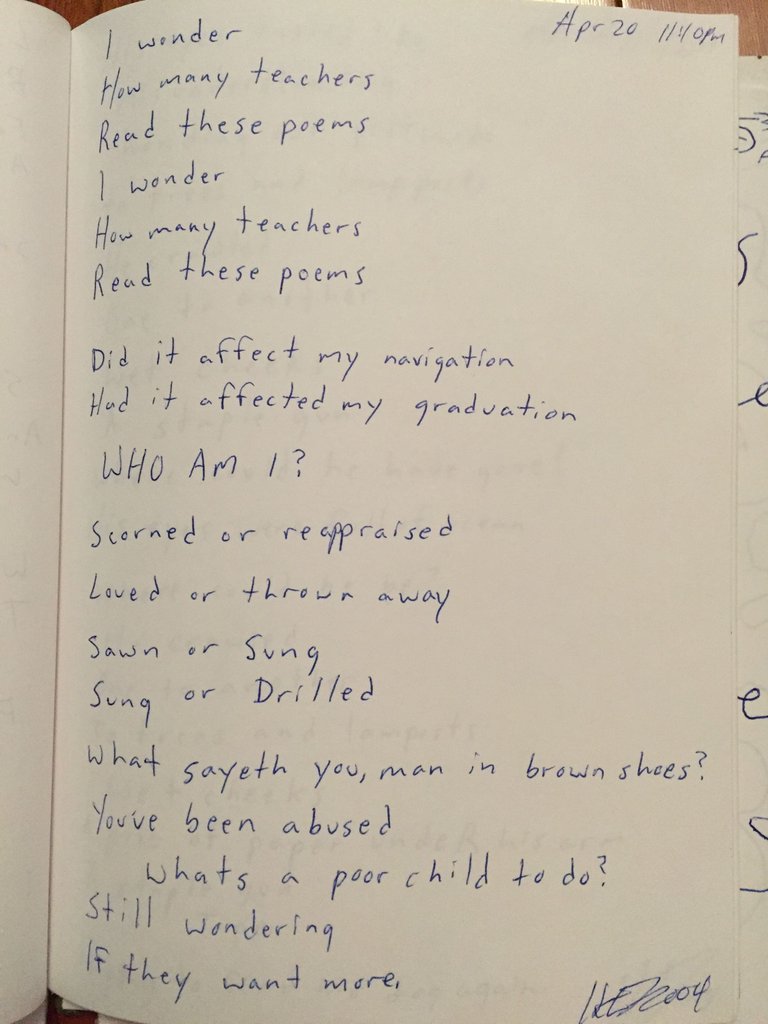 Apr 20 11:10pm
I wonder
How many teachers
Read these poems
I wonder
How many teachers
Read these poems
Did it affect my navigation
Had it affected my graduation
WHO AM I?
Scorned or reappraised
Loved or thrown away
Sawn or Sung
Sung or Drilled
What sayeth you, man in brown shoes?
You've been abused
whats a poor child to do?
Still wondering
If they want more.
2004